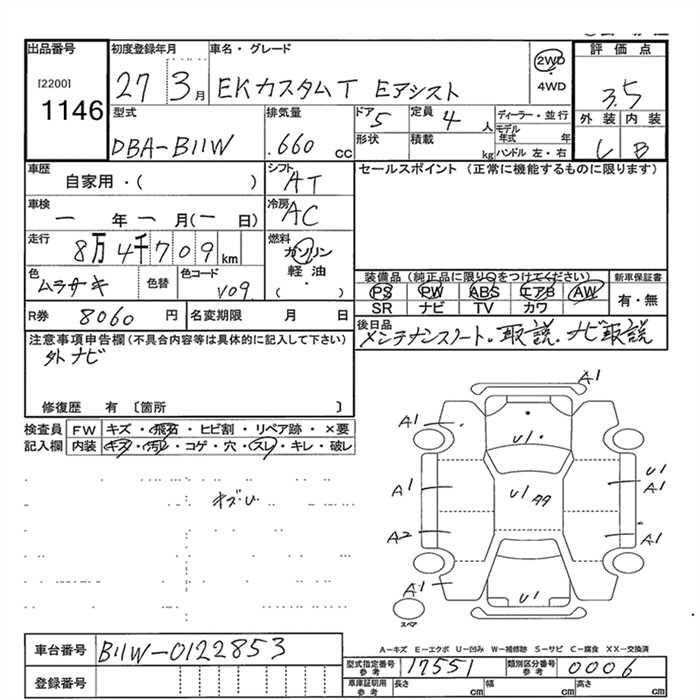 出品番号 初度登録年月 車名・グレード 評価点
[2200] 1146
27 3月 EKカスタムT Eアシスト 2WD 3.5
4WD
型式 排気量 ドア 5 定員 4人 ディーラー・並行 外装 内装
DBA-B11W .660cc 形状 積載 kg モデル年式 年 B
ハンドル 左・右
車歴 シフト セールスポイント (正常に機能するものに限ります)
自家用・( ) AT
車検 冷房
一年一月(一日) AC
走行 燃料
8万4千709km ガソリン
軽油・
( )
色 色替 色コード 装備品(純正品に限り○をつけてください) 新車保証書
ムラサキ V09 PS PW ABS エアB AW 有・無
SR ナビ TV カワ
R券 8060円 名変期限 月 日 後日品
メンテナンスノート・取説・ナビ取説
注意事項申告欄(不具合内容等は具体的に記入して下さい)
外ナビ
修復歴 有 〔箇所 〕
検査員 FW キズ・飛石・ヒビ割・リペア跡・×要
記入欄 内装 キズ・汚レ・コゲ・穴・スレ・キレ・破レ
A1
A1 U1
A1 U1 U1
A1
A2 A1
A1 U1 A1
スペア
A-キズ E-エクボ U-凹み W-補修跡 S-サビ C-腐食 XX-交換済
車台番号 B11W-0122853
型式指定番号 参考 17551 類別区分番号 参考 0006
登録番号 車庫証明用 参考 長さ cm 幅 cm 高さ cm